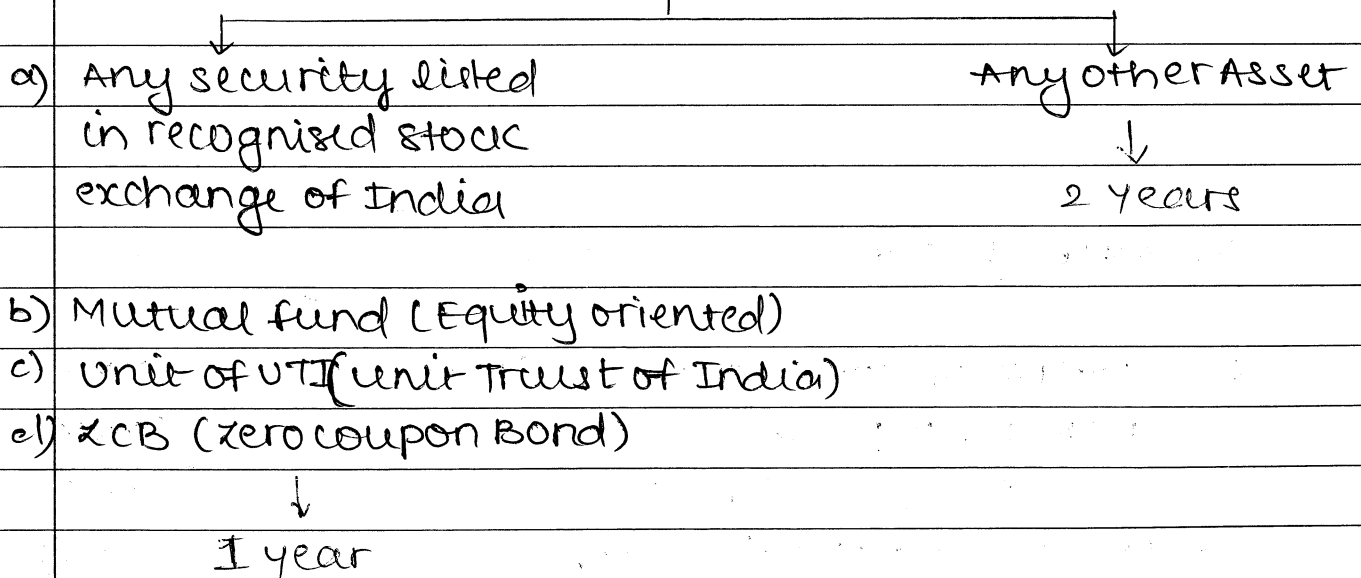 a) Any security listed
in recognised stock
exchange of India
Any other Asset
2 years
b) Mutual fund (Equity oriented)
c) Unit of UTI (unit Trust of India)
d) ZCB (zero coupon Bond)
1 year